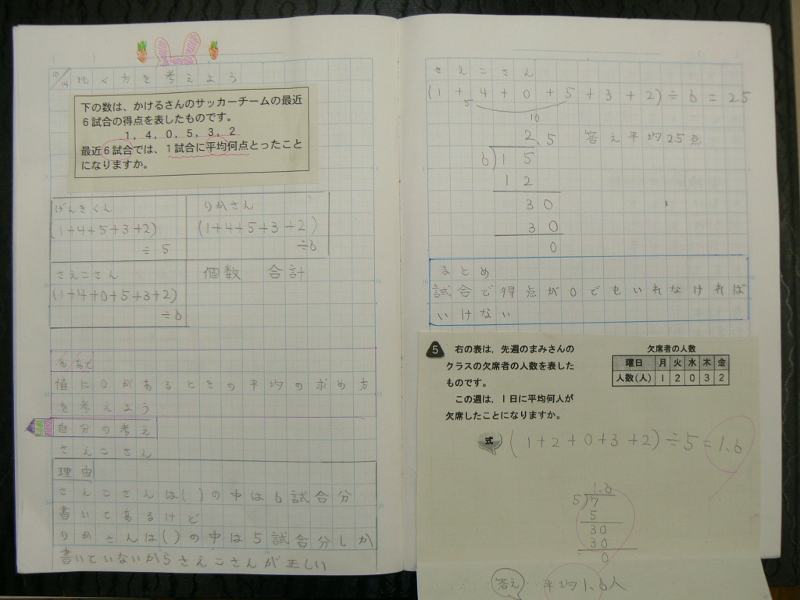 比べ方を考えよう
下の数は、かけるさんのサッカーチームの最近
6試合の得点を表したものです。
1, 4, 0, 5, 3, 2
最近6試合では、1試合に平均何点とったこと
になりますか。
げんきくん
(1+4+5+3+2)
÷5
りかさん
(1+4+5+3+2)
÷6
さえこさん
(1+4+0+5+3+2)
÷6
個数 合計
めあて
値に0があるときの平均の求め方
を考えよう
自分の考え
さえこさん
理由
さえこさんは( )の中は6試合分
書いてあるけど
りかさんは( )の中は5試合分しか
書いていないからさえこさんが正しい
さえこさん
(1+4+0+5+3+2)÷6=2.5
5
10
2.5
答え平均2.5点
6)15
12
30
30
0
まとめ
試合で得点が0でもいれなければ
いけない
5 右の表は、先週のまみさんの
クラスの欠席者の人数を表した
ものです。
この週は、1日に平均何人が
欠席したことになりますか。
欠席者の人数
曜日 月 火 水 木 金
人数(人) 1 2 0 3 2
式 (1+2+0+3+2)÷5=1.6
1.6
5)7
5
30
30
0
答え 平均1.6人